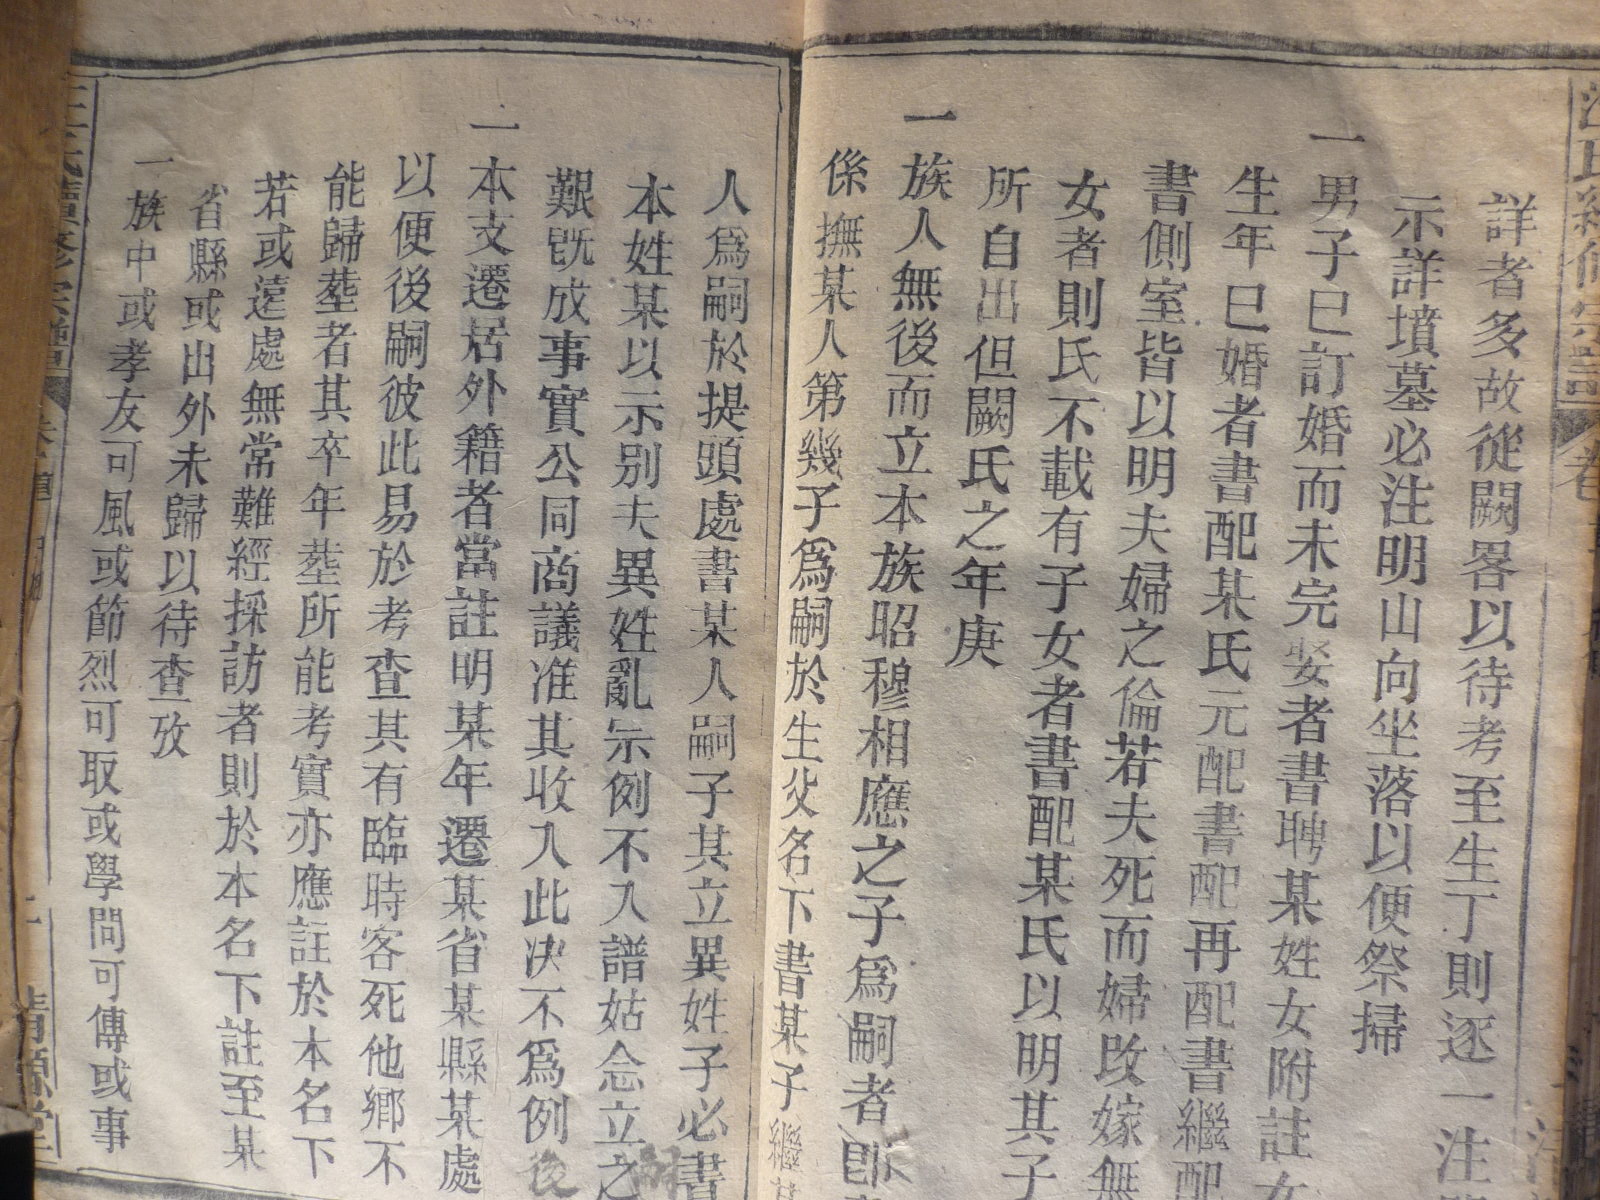 詳者多故從闕畧以待考至生丁則逐一注
示詳墳墓必注明山向坐落以便祭掃
一男子已訂婚而未完娶者書聘某姓女附註女
生年已婚者書配某氏元配書配再配書繼配
書側室皆以明夫婦之倫若夫死而婦改嫁無
女者則氏不載有子女者書配某氏以明其子
所自出但闕氏之年庚
一族人無後而立本族昭穆相應之子爲嗣者卽
係撫某人第幾子爲嗣於生父名下書某子繼某
人爲嗣於提頭處書某人嗣子其立異姓子必書
本姓某以示別夫異姓亂宗例不入譜姑念立之
艱旣成事實公同商議准其收入此决不爲例後
一本支遷居外籍者當註明某年遷某省某縣某處
以便後嗣彼此易於考查其有臨時客死他鄉不
能歸塟者其卒年塟所能考實亦應註於本名下
若或遠處無常難經採訪者則於本名下註至某
省縣或出外未歸以待查攷
一族中或孝友可風或節烈可取或學問可傳或事
清源堂